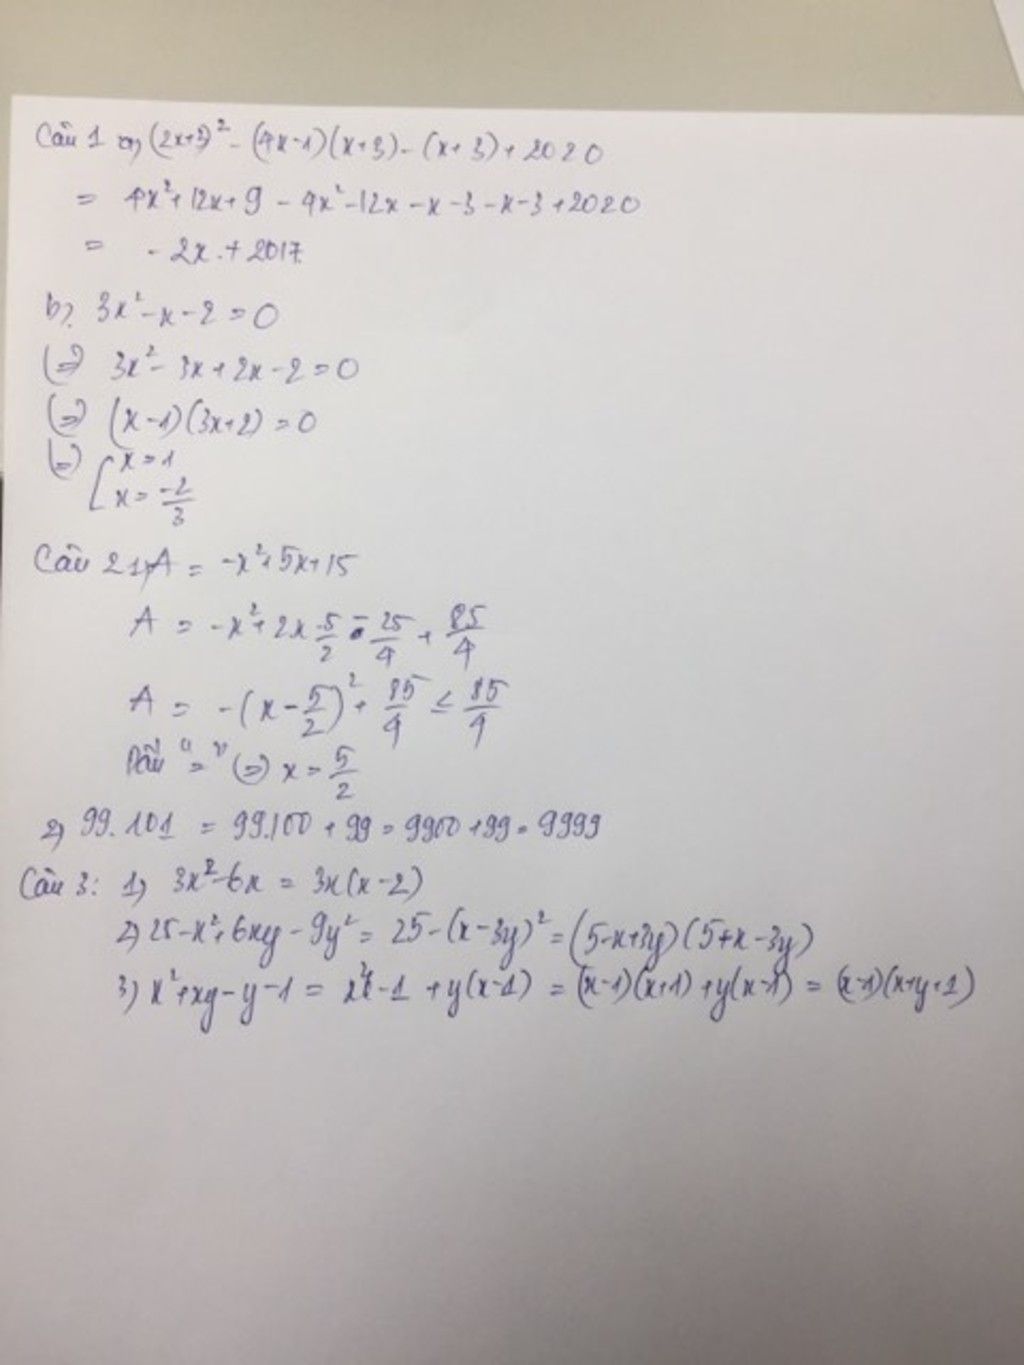 Câu 1 a, (2x+3)² - (4x-1)(x+3) - (x+3) + 2020
= 4x² + 12x + 9 - 4x² - 12x - x - 3 - x - 3 + 2020
= -2x + 2017
b, 3x² - x - 2 = 0
(=) 3x² - 3x + 2x - 2 = 0
(=) (x-1)(3x+2) = 0
(=) [ x = 1
x = -2/3
Câu 2 1, A = -x² + 5x + 15
A = -x² + 2x 5/2 - 25/4 + 85/4
A = -(x - 5/2)² + 85/4 ≤ 85/4
Dấu "=" (=) x = 5/2
2, 99.101 = 99.100 + 99 = 9900 + 99 = 9999
Câu 3: 1, 3x² - 6x = 3x(x-2)
2, 25 - x² + 6xy - 9y² = 25 - (x-3y)² = (5-x+3y)(5+x-3y)
3, x² + xy - y - 1 = x² - 1 + y(x-1) = (x-1)(x+1) + y(x-1) = (x-1)(x+y+1)